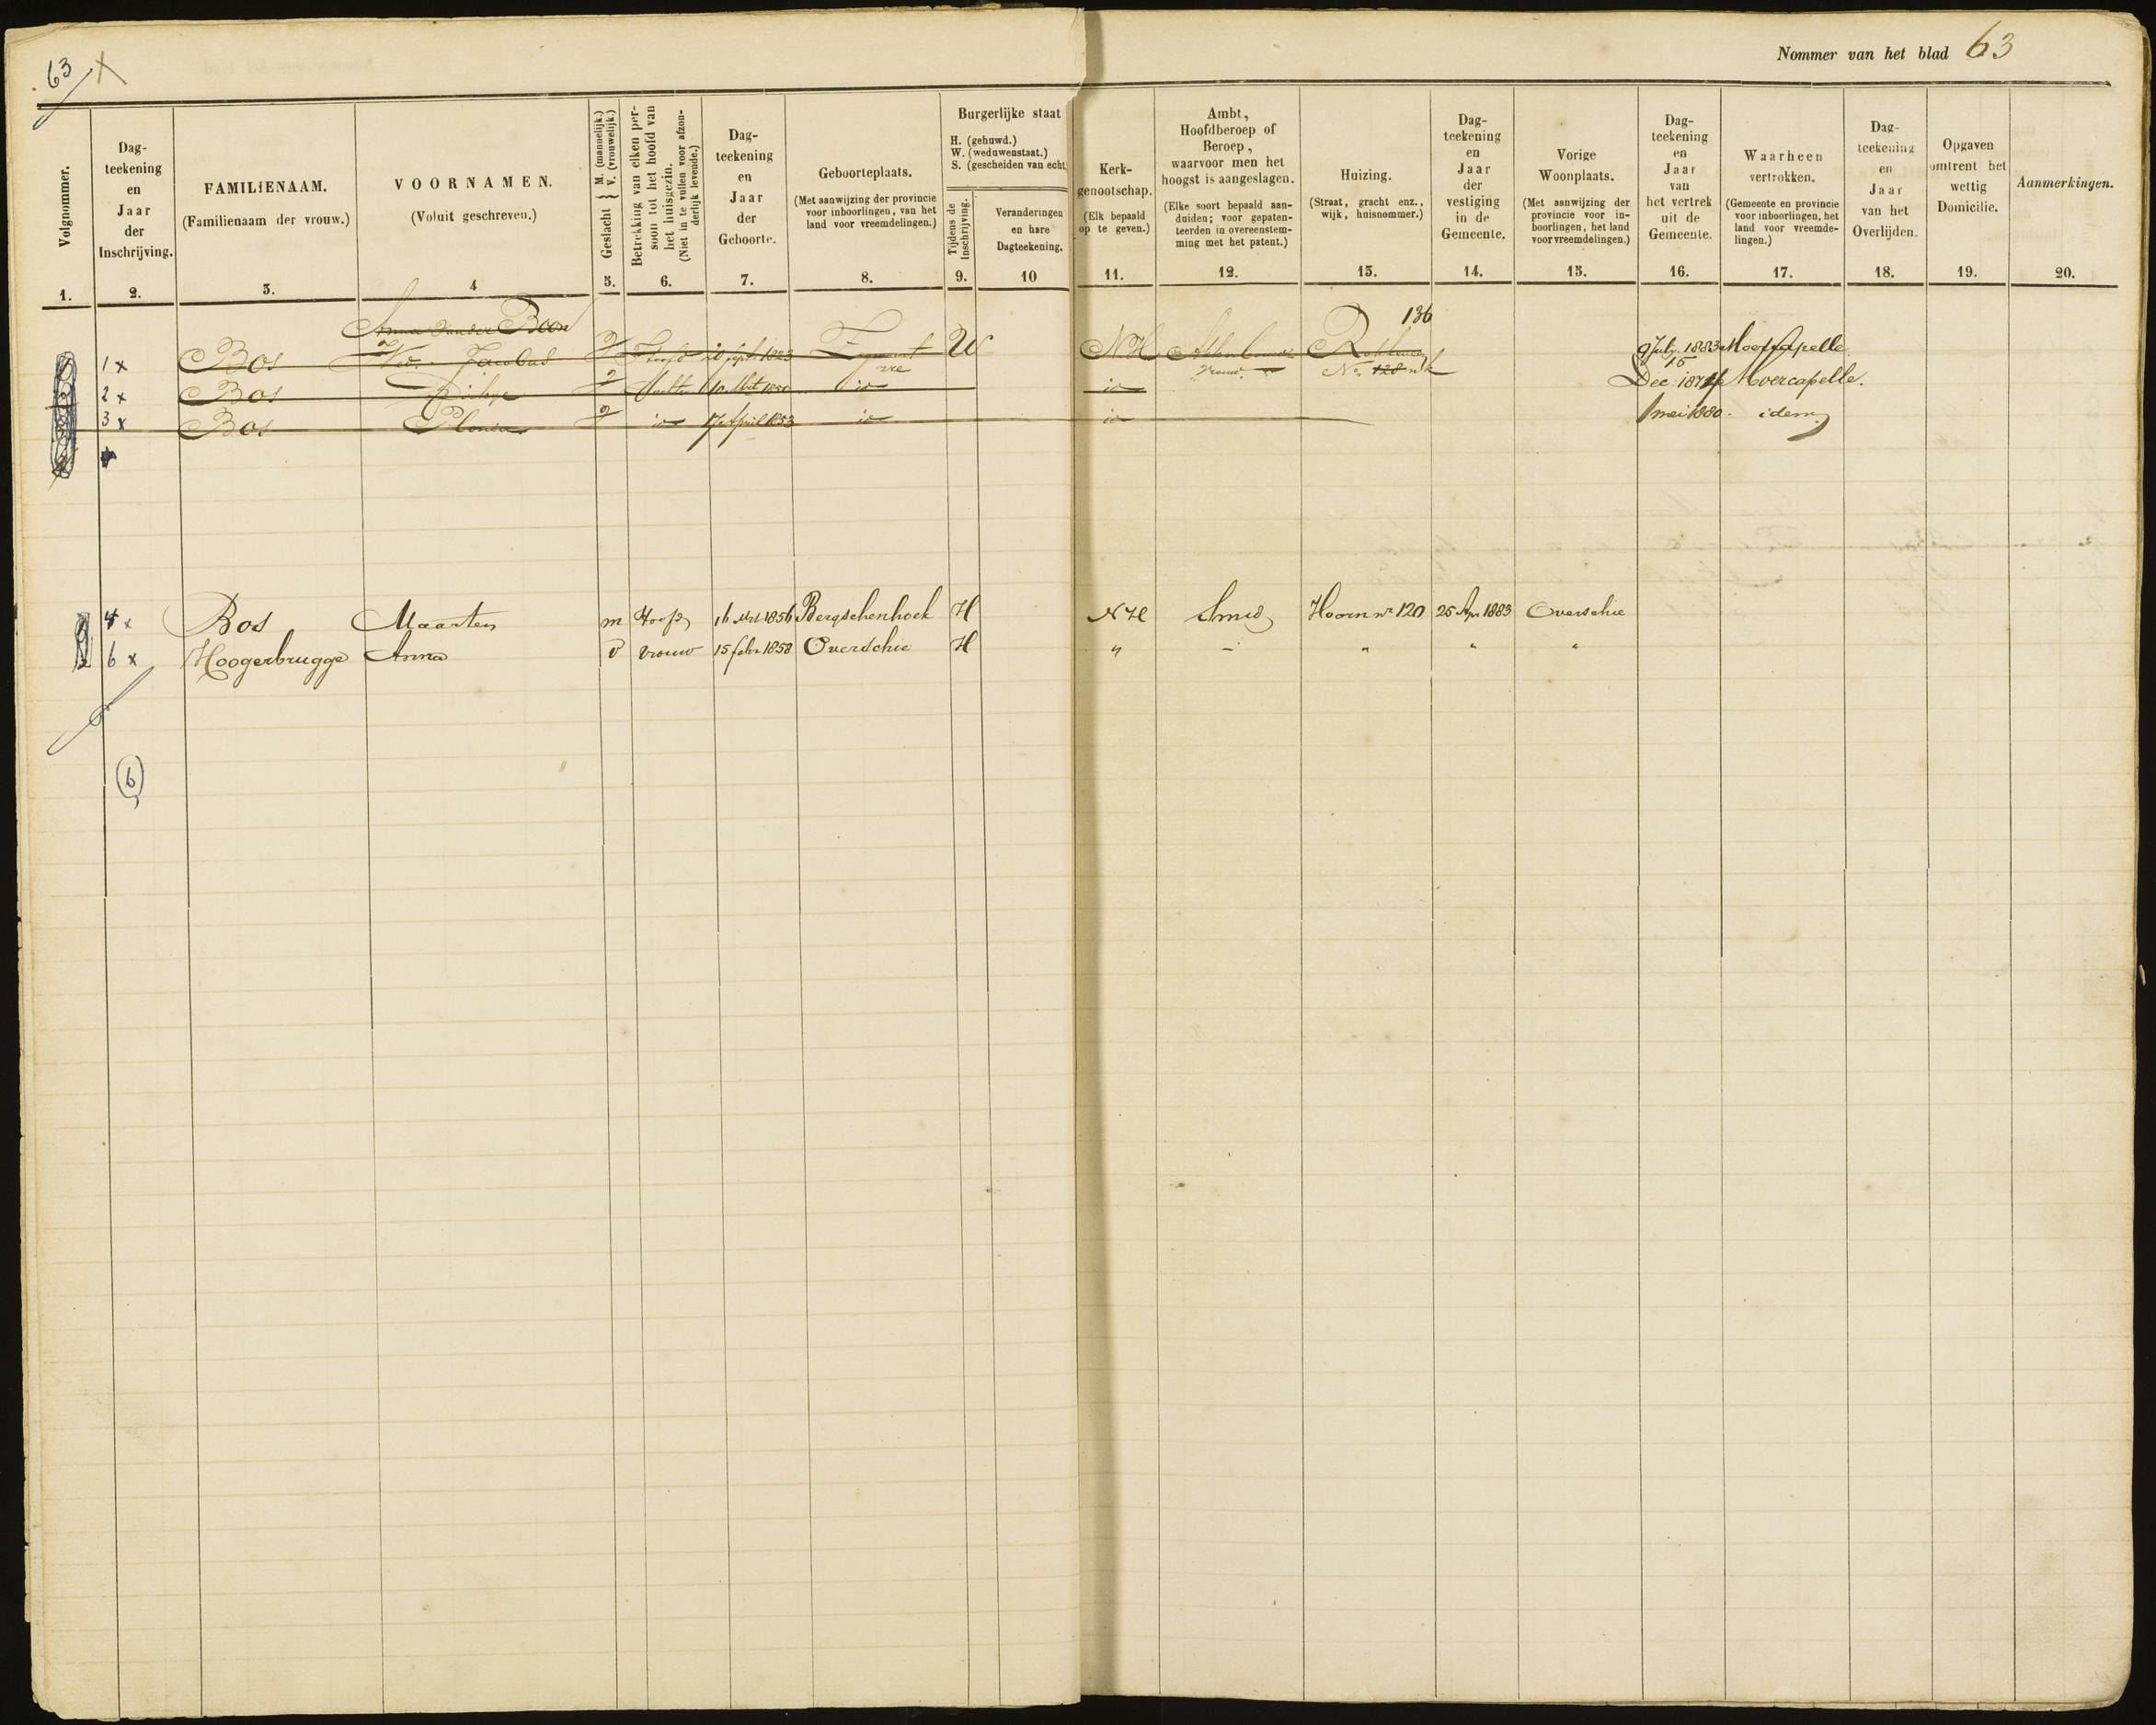 63 X
Nommer van het blad 63
Volgnommer.
1.
Dag-
teekening
en
Jaar
der
Inschrijving.
2.
FAMILIENAAM.
(Familienaam der vrouw.)
3.
VOORNAMEN.
(Voluit geschreven.)
4
Geslacht { M. (mannelijk.)
V. (vrouwelijk.)
5.
Betrekking van elken per-
soon tot het hoofd van
het huisgezin.
(Niet in te vullen voor afzon-
derlijk levende.)
6.
Dag-
teekening
en
Jaar
der
Geboorte.
7.
Geboorteplaats.
(Met aanwijzing der provincie
voor inboorlingen, van het
land voor vreemdelingen.)
8.
Burgerlijke staat
H. (gehuwd.)
W. (weduwenstaat.)
S. (gescheiden van echt
Tijdens de
Inschrijving.
9.
Veranderingen
en hare
Dagteekening.
10
Kerk-
genootschap.
(Elk bepaald
op te geven.)
11.
Ambt,
Hoofdberoep of
Beroep,
waarvoor men het
hoogst is aangeslagen.
(Elke soort bepaald aan-
duiden; voor gepaten-
teerden in overeenstem-
ming met het patent.)
12.
Huizing.
(Straat, gracht enz.,
wijk, huisnommer.)
13.
Dag-
teekening
en
Jaar
der
vestiging
in de
Gemeente.
14.
Vorige
Woonplaats.
(Met aanwijzing der
provincie voor in-
boorlingen, het land
voor vreemdelingen.)
15.
Dag-
teekening
en
Jaar
van
het vertrek
uit de
Gemeente.
16.
Waarheen
vertrokken.
(Gemeente en provincie
voor inboorlingen, het
land voor vreemde-
lingen.)
17.
Dag-
teekening
en
Jaar
van het
Overlijden.
18.
Opgaven
omtrent het
wettig
Domicilie.
19.
Aanmerkingen.
20.
Anna van der Boon 136
1 x Bos Wed. Jacobus V Hoofd 20 Sept. 1823 W NH 9 July 1883 Moercapelle
vrouw No. 128
2 x Bos V 1850 id id 15 Dec 1874 Moercapelle.
3 x Bos Plonia V id 17 April 1853 id id 1 mei 1880 idem
4 x Bos Maarten m Hoofd 16 Mrt 1856 Bergschenhoek H NH Smid Hoorn no 120 25 Apr 1883 Overschie
6 x Hoogerbrugge Anna v vrouw 15 febr 1858 Overschie H " - " " "
6